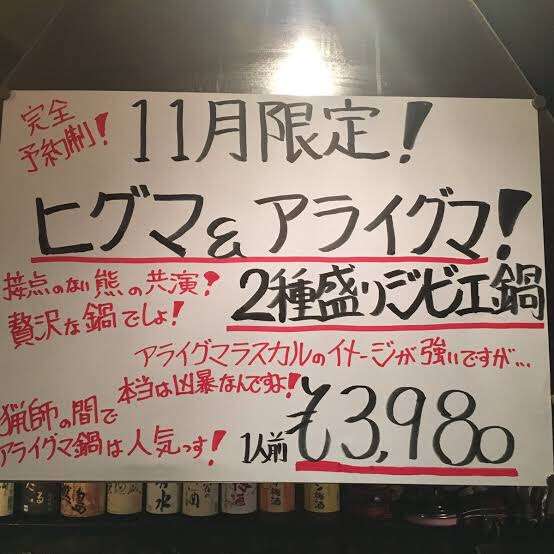 完全
予約制!
11月限定!
ヒグマ&アライグマ!
接点のない熊の共演!
贅沢な鍋でしょ!
2種盛りジビエ鍋
アライグマラスカルのイメージが強いですが…
本当は凶暴なんですよ!
猟師の間で
アライグマ鍋は人気っす!
1人前 ¥3,980